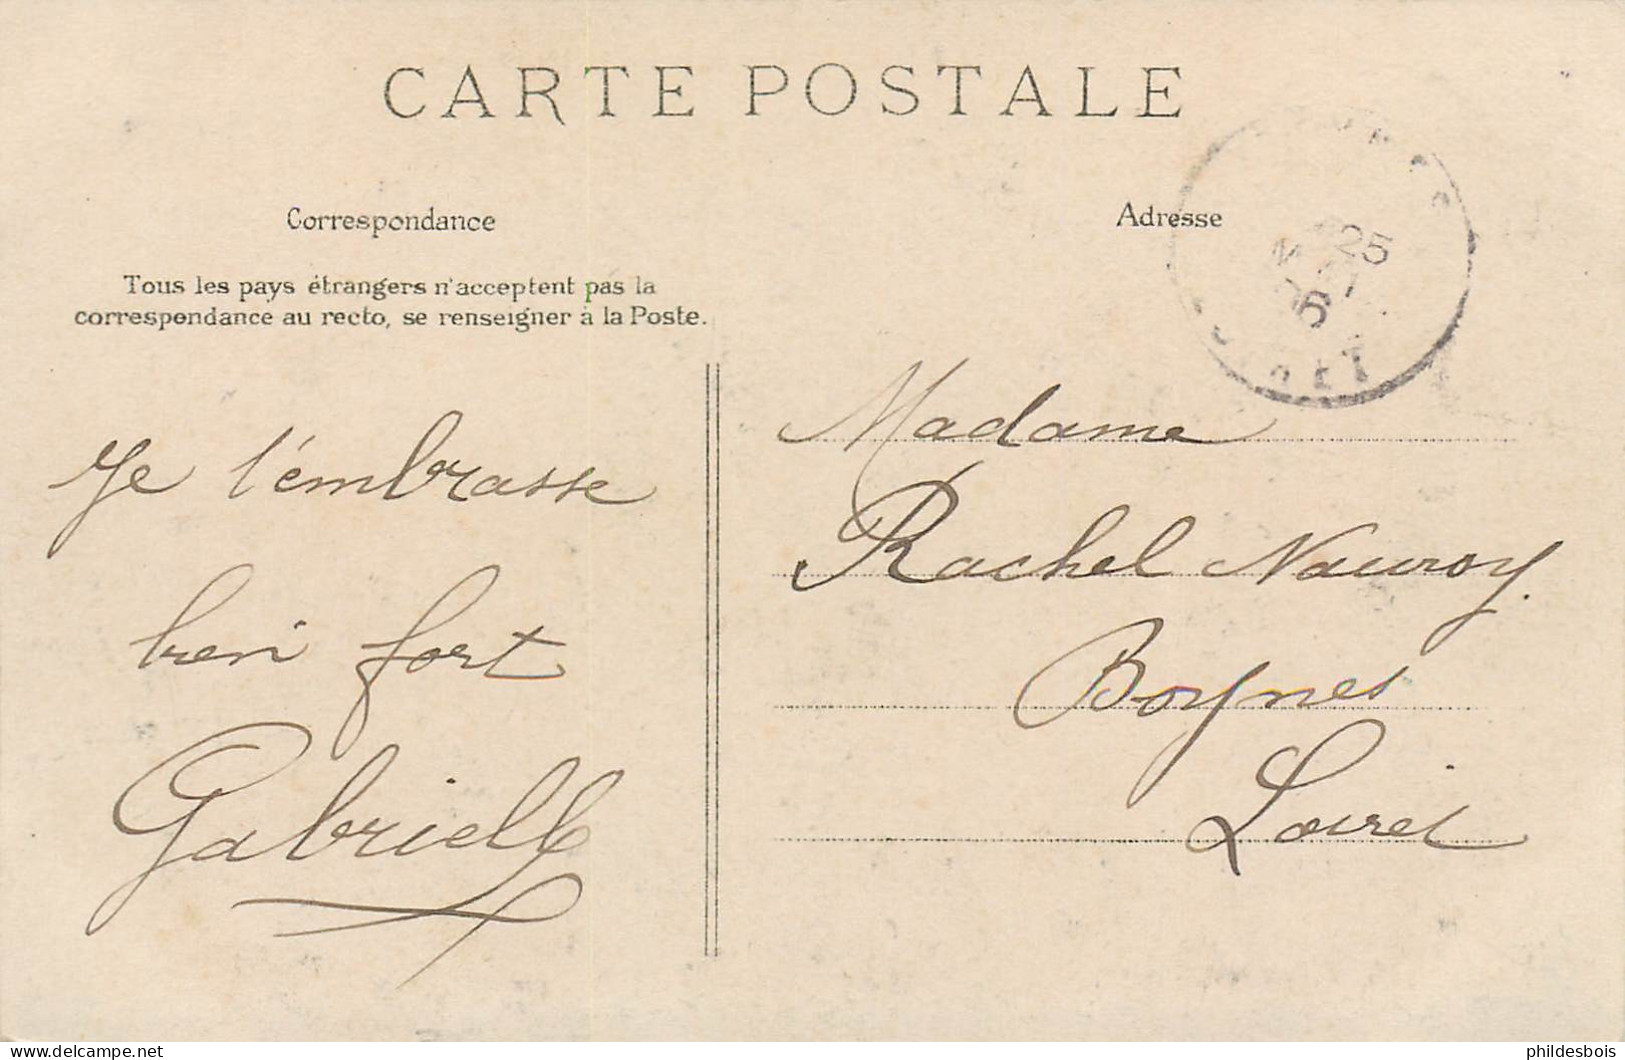 CARTE POSTALE
Correspondance
Adresse
Tous les pays étrangers n'acceptent pas la
correspondance au recto, se renseigner à la Poste.
Je t'embrasse
bien fort
Gabrielle
Madame
Rachel Nauroy.
Boynes
Loiret
25
MAI
06
LOIRET
phildesbois